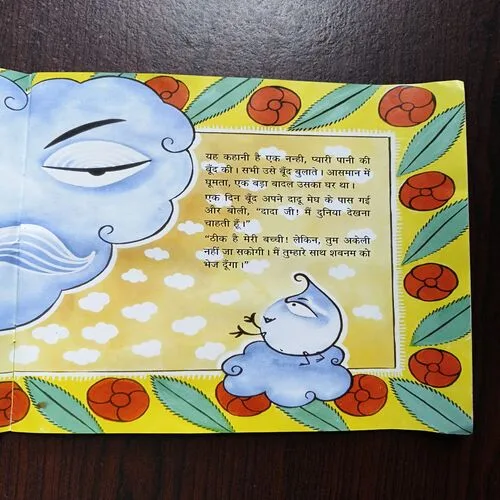 यह कहानी है एक नन्ही, प्यारी पानी की
बूँद की। सभी उसे बूँद बुलाते। आसमान में
घूमता, एक बड़ा बादल उसका घर था।
एक दिन बूँद अपने दादू मेघ के पास गई
और बोली, “दादा जी! मैं दुनिया देखना
चाहती हूँ।”
“ठीक है मेरी बच्ची! लेकिन, तुम अकेली
नहीं जा सकोगी। मैं तुम्हारे साथ शबनम को
भेज दूँगा।”